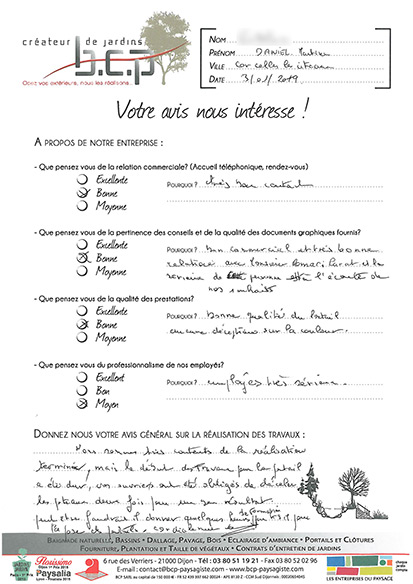 créateur de jardins
b.c.p
Osez vos extérieurs, nous les réalisons...
NOM
PRÉNOM DANIEL
VILLE Corcelles les Citeaux
DATE 3/01/2019
Votre avis nous intéresse !
A PROPOS DE NOTRE ENTREPRISE :
- Que pensez vous de la relation commerciale? (Accueil téléphonique, rendez-vous)
Excellente
Bonne
Moyenne
POURQUOI? très bon contact
- Que pensez vous de la pertinence des conseils et de la qualité des documents graphiques fournis?
Excellente
Bonne
Moyenne
POURQUOI? bon commercial et très bonne
relation avec Monsieur et la
personne à l'écoute de
nos souhaits
- Que pensez vous de la qualité des prestations?
Excellente
Bonne
Moyenne
POURQUOI? bonne qualité du portail
aucune déception sur la couleur.
- Que pensez vous du professionnalisme de nos employés?
Excellent
Bon
Moyen
POURQUOI? employés très sérieux
DONNEZ NOUS VOTRE AVIS GÉNÉRAL SUR LA RÉALISATION DES TRAVAUX :
Nous sommes très contents de la réalisation
terminée, mais le début des travaux pour le portail
a été dur, vos ouvriers ont été obligés de décaler
les poteaux deux fois pour un bon résultat
peut être faudrait il donner quelques
BAIGNADE NATURELLE, BASSINS • DALLAGE, PAVAGE, BOIS • ECLAIRAGE D'AMBIANCE • PORTAILS ET CLÔTURES
FOURNITURE, PLANTATION ET TAILLE DE VÉGÉTAUX • CONTRATS D'ENTRETIEN DE JARDINS
Florissimo
Paysalia
6 rue des Verriers - 21000 Dijon | Tél : 03 80 51 19 21 - Fax : 03 80 52 02 96
E-mail : contact@bcp-paysagiste.com | www.bcp-paysagiste.com
LES ENTREPRISES DU PAYSAGE